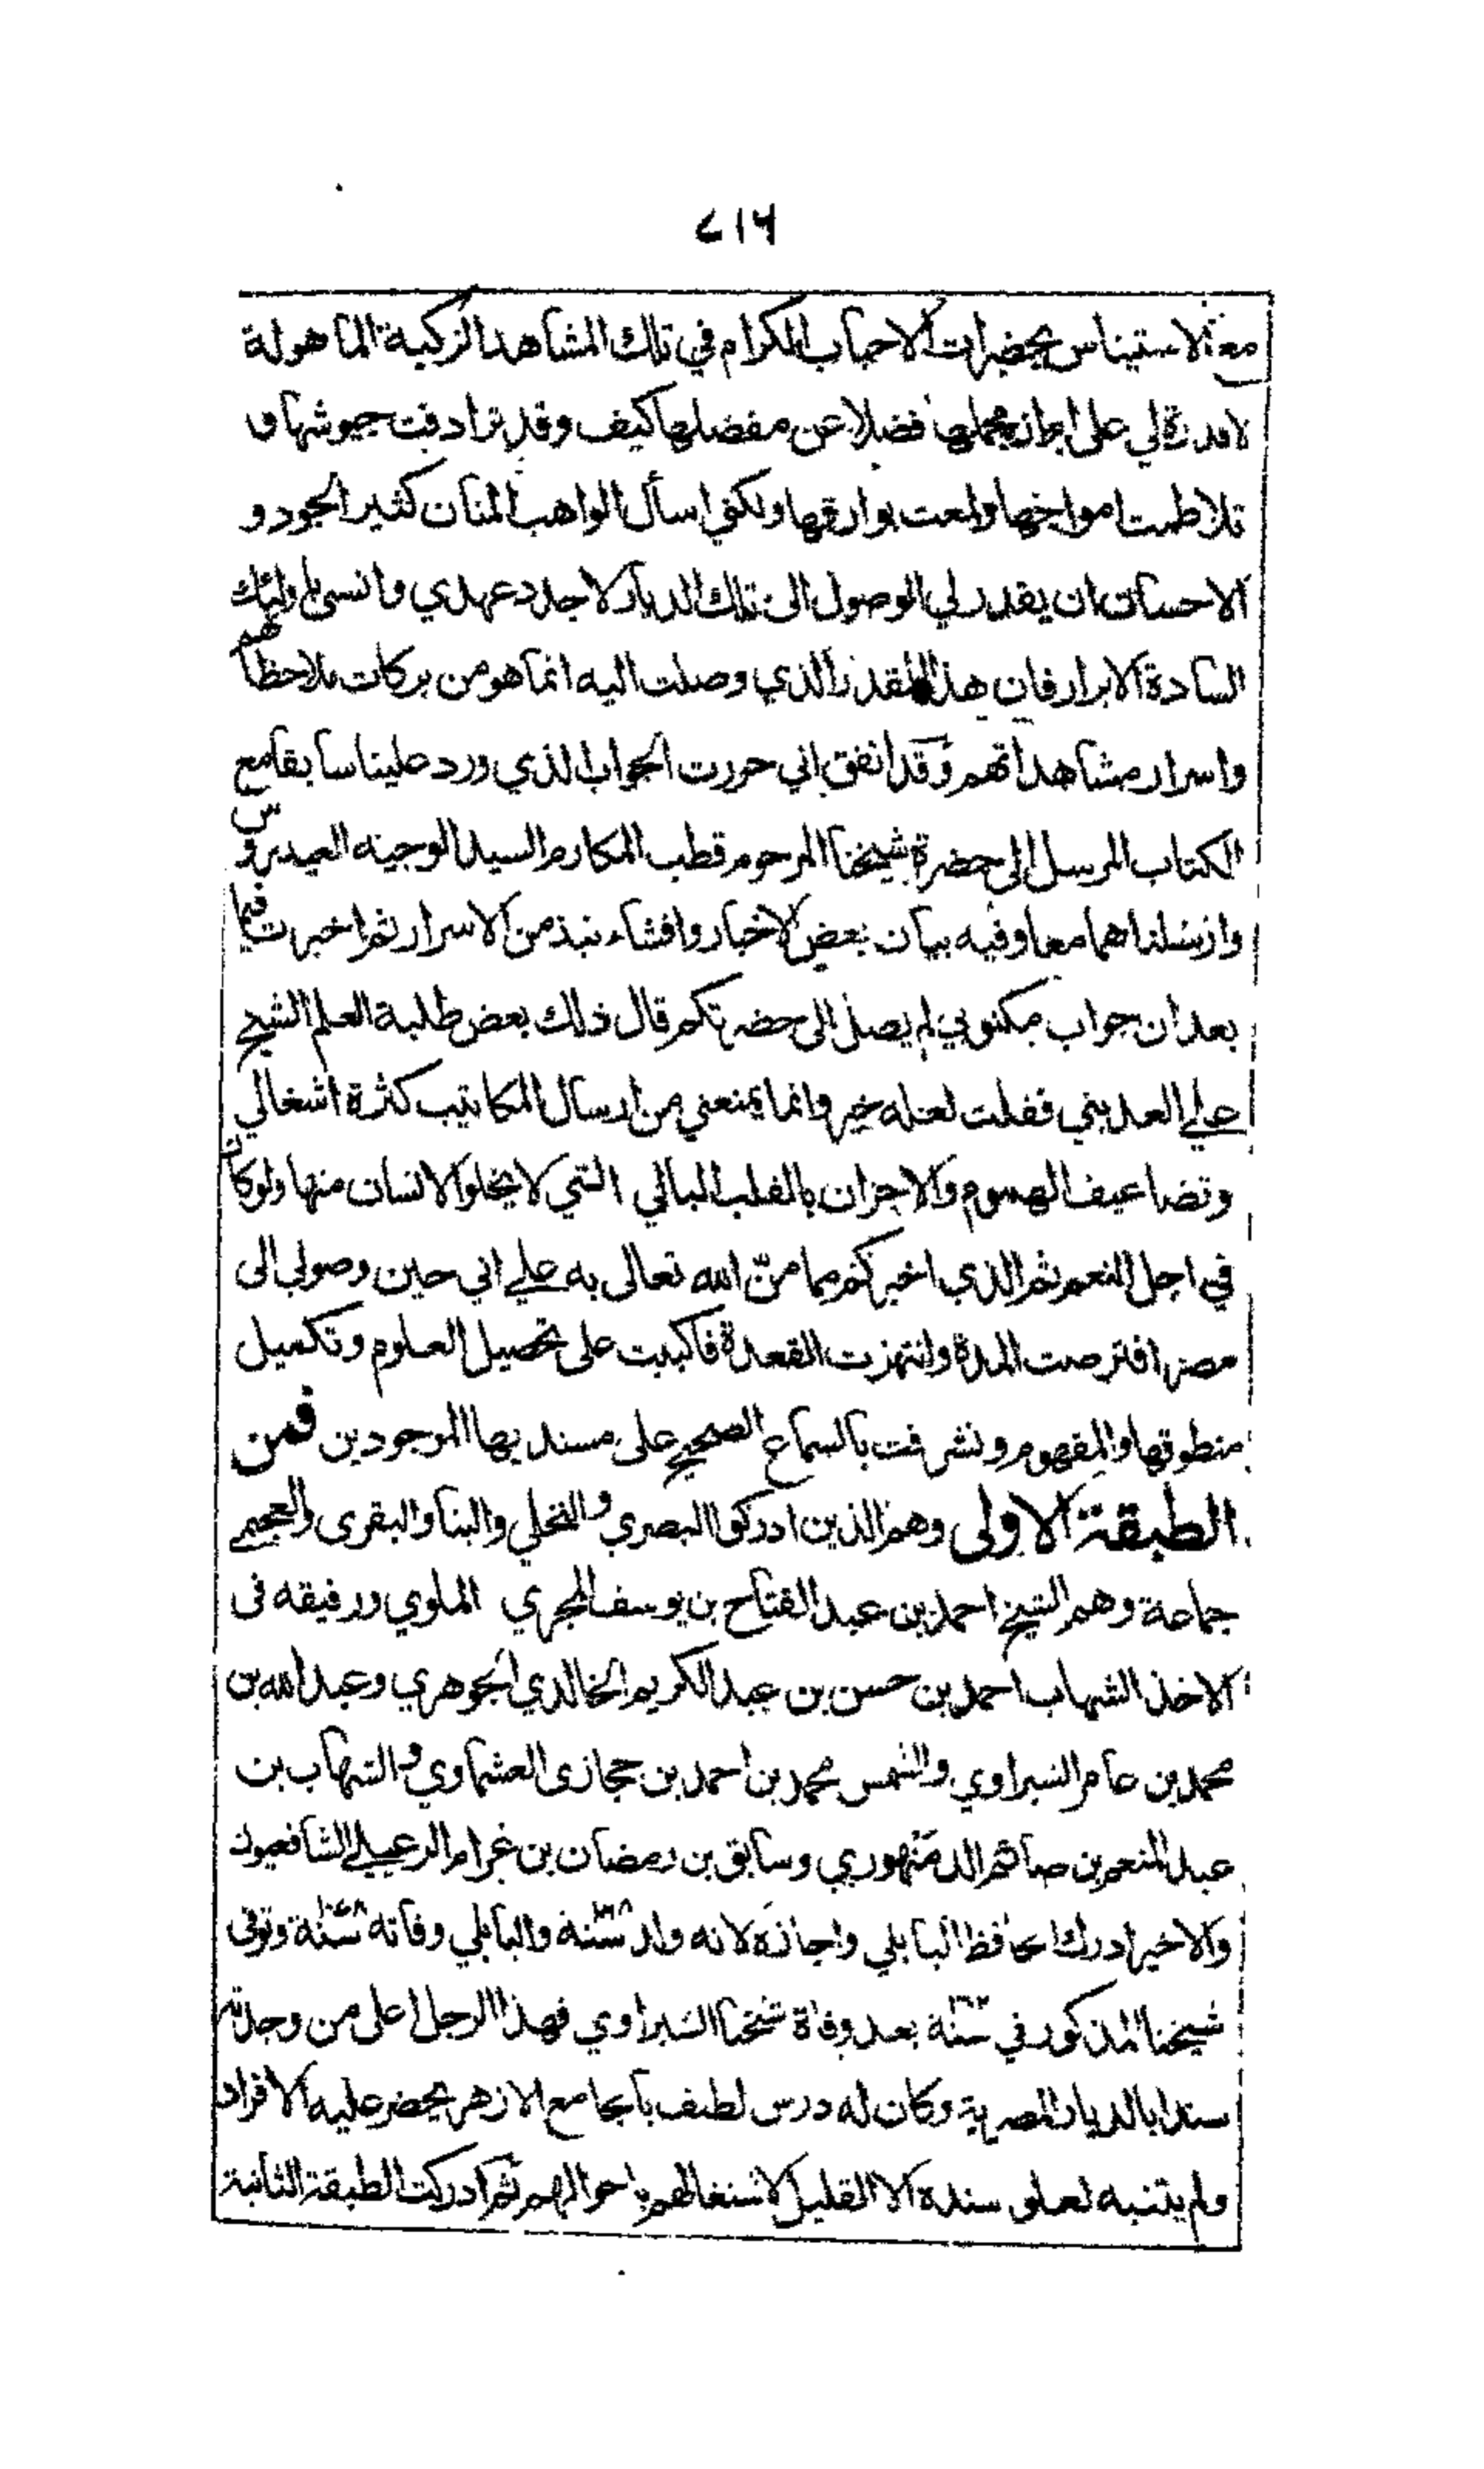 ٢١٦
مع الاستيناس بحضرات الاحباب الكرام في تلك المشاهد الزكية الماهولة
لا قدرة لي على ابراز مجملها فضلا عن مفصلها كيف وقد ترادفت جيوشها و
تلاطمت امواجها ولمعت بوارقها ولكني اسأل الواهب المنان كثير الجود و
الاحسان ان يقدر لي الوصول الى تلك الديار لاجدد عهدي وانسى باوليك
السادة الابرار فان هذا المقدر الذي وصلت اليه انما هو من بركات ملاحظاتهم
واسرار مشاهداتهم وقد اتفق اني حررت الجواب الذي ورد علينا سابقا مع
الكتاب المرسل الى حضرة شيخنا المرحوم قطب المكارم السيد الوجيه العيدروس
وارسلناهما معا وفيه بيان بعض الاخبار وافشاء نبذ من الاسرار ثم اخبرت فيما
بعد ان جواب مكتوبي لم يصل الى حضرتكم قال ذلك بعض طلبة العلم الشيخ
علي العديني فقلت لعله خير وانما يمنعني من ارسال المكاتيب كثرة اشغالي
وتضاعيف الهموم والاحزان بالقلب البالي التي لا يخلو الانسان منها ولو كان
في اجل النعم ثم الذي اخبركم مما منّ الله تعالى به علي اني حين وصولي الى
مصر افترصت المدة وانتهزت القعدة فاكببت على تحصيل العلوم وتكميل
منطوقها والمفهوم وتشرفت بالسماع الصحيح على مسنديها الموجودين فمن
الطبقة الاولى وهم الذين ادركوا البصري والنخلي والبنا والبقرى والعجيمي
جماعة وهم الشيخ احمد بن عبد الفتاح بن يوسف المجري الملوي ورفيقه في
الاخذ الشهاب احمد بن حسن بن عبد الكريم الخالدي الجوهري وعبد الله بن
محمد بن عامر الشبراوي والشمس محمد بن احمد بن حجازى العشماوي والشهاب بن
عبد المنعم بن صائم الدمنهوري وسابق بن رمضان بن غرام الزعبلي الشافعيون
والاخير ادرك حافظ البابلي واجازه لانه ولد سنة والبابلي وفاته سنة وتوفي
شيخنا المذكور في سنة بعد وفاة شيخنا الشبراوي فهذا الرجل اعلى من وجدته
سندا بالديار المصرية وكان له درس لطيف بالجامع الازهر يحضر عليه الافراد
ولم يتنبه لعلو سنده الا القليل لاشتغالهم باحوالهم ثم ادركت الطبقة الثانية